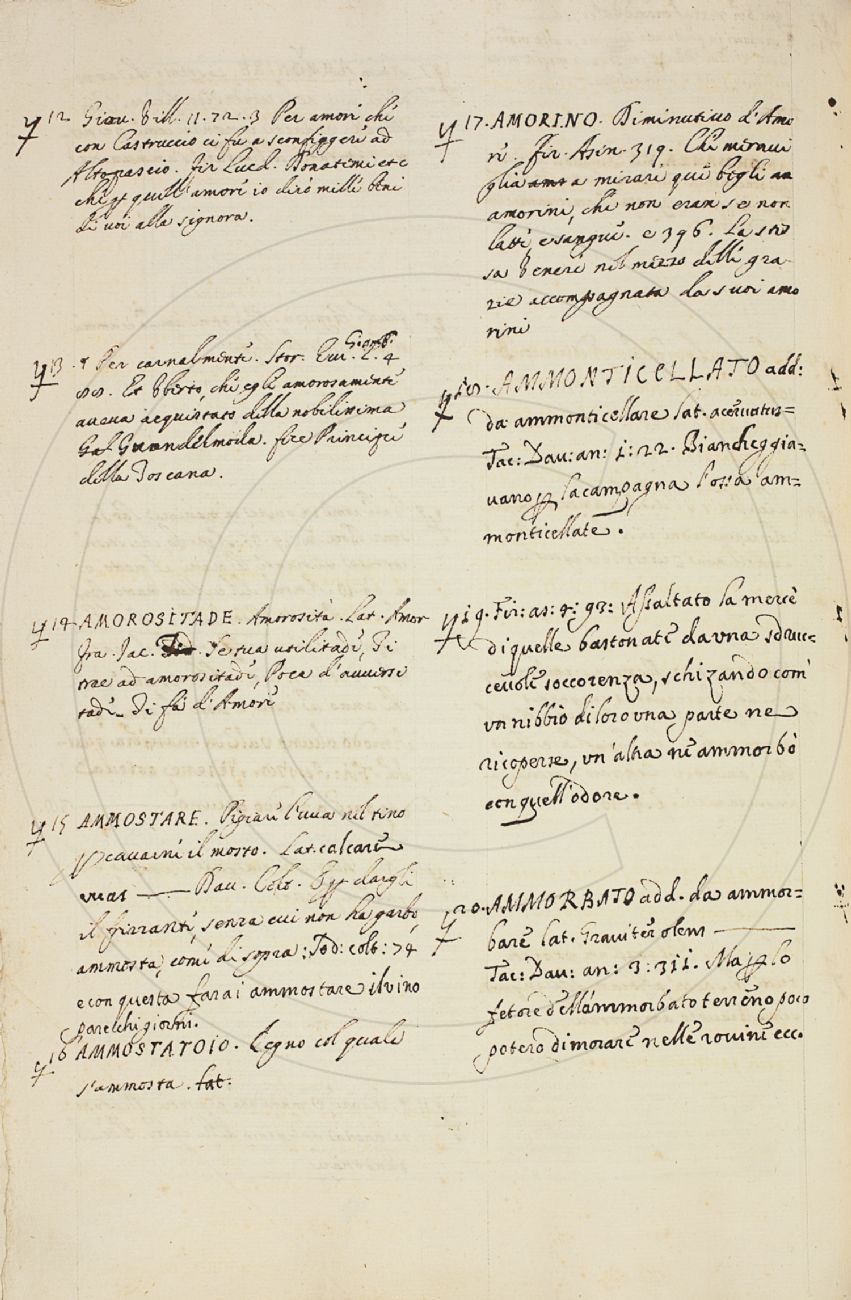 12 Giou. Vill. 11. 72. 3 Per amori chi
con Castruccio ci fu a sconfiggeri ad
Altopascio. fir Lucd. Bonatemi etc
chi p quell' amori io dirò milli beni
di uoi alla signora.
13 Per carnalmenti. Stor. Eur. Giamb. L. 4
Et Vberto, chi egli amorosamenti
aueua acquistato della nobilissima
fici Principi
della Toscana.
14 AMOROSITADE. Amorosità. Lat. Amor
fra. Jac. Tod. Se tua utilitadi, Ti
trae ad amorositadi, Poca d'auuersi
tadi Ti fà d'Amori
15 AMMOSTARE. Pigiari l'uua nel tino
p cauarni il mosto. Lat. calcare
uuas — Dau. Colt. dargli
il firranti, senza cui non ha garbo,
ammosta, comi di sopra: Tod: colt: 74
e con questa farai ammostare il uino
parecchi giorni.
16 AMMOSTATOIO. Legno col quale
s'ammosta. Lat:
17. AMORINO. Diminutiuo d'Amo
ri. Fir. Asin. 319. Chi merauui
glia a mirari qui begli
amorini, chi non eran se non
latti, e sangui. e 396. La stes
sa Veneri nel mezzo delli gra
zie accompagnata da suoi amo
rini
18. AMMONTICELLATO add:
da ammonticellare lat. aceruatus=
Tac: Dau: an: 1: 22. Biancheggia=
uano p la campagna l'ossa am=
monticellate.
19. Fir: as: 4: 93: Assaltato la mercè
di quelle bastonate da vna sdruc=
ceuole soccorenza, schizando com'
vn nibbio di loro vna parte ne
ricoperse, vn'altra ne ammorbò
con quell'odore.
20. AMMORBATO add. da ammor=
bare lat. Grauiter olens —
Tac: Dau: an: 3: 311. Ma p lo
fetore dell'ammorbato terreno poco
poterò dimorare nelle rouine ecc.